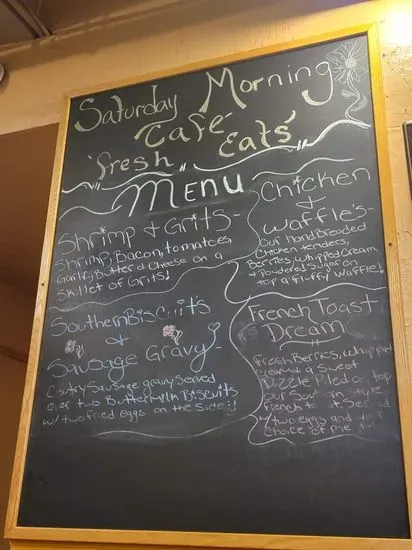 Saturday Morning
Café
"fresh Eats"
Menu
Shrimp & Grits -
Shrimp, Bacon, tomatoes,
Garlic, Butter & Cheese on a
Skillet of Grits!
Chicken
&
Waffle's -
Our hand Breaded
Chicken tenders,
Berries, Whipped Cream
& Powdered Sugar on
top a fluffy Waffle!
Southern Biscuit's
&
Sausage Gravy
Country Sausage gravy served
over two Buttermilk Biscuits
w/ two fried eggs on the side!!
French Toast
Dream
fresh Berries, Whipped
cream & a sweet
Drizzle Piled on top
our South in Style
french Served
two eggs and
choice of